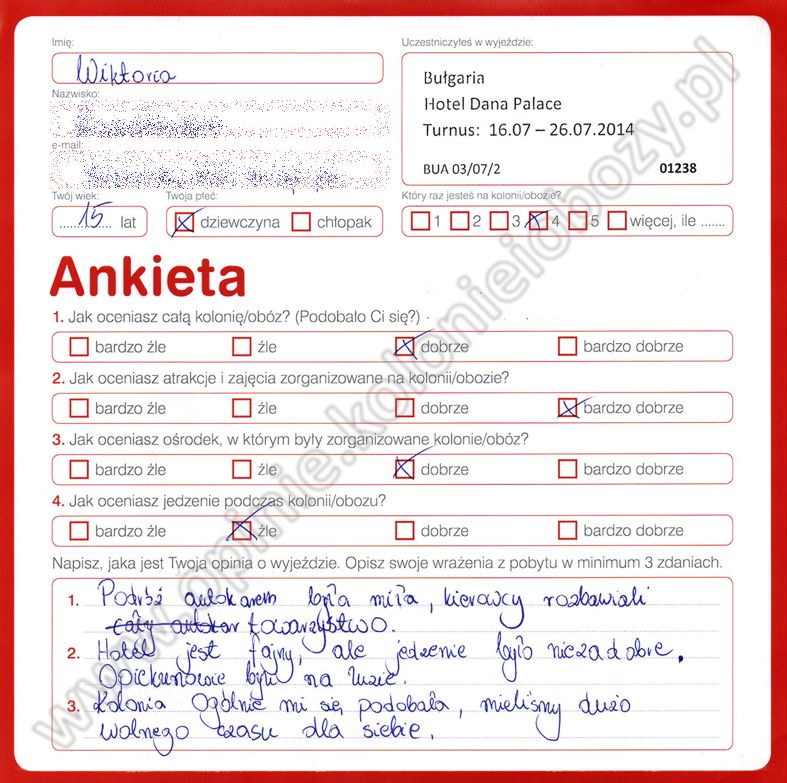 Imię:
Wiktoria
Nazwisko:
e-mail:
Twój wiek:
15 lat
Twoja płeć:
dziewczyna chłopak
Uczestniczyłeś w wyjeździe:
Bułgaria
Hotel Dana Palace
Turnus: 16.07 – 26.07.2014
BUA 03/07/2 01238
Który raz jesteś na kolonii/obozie?
1 2 3 4 5 więcej, ile .......
Ankieta
1. Jak oceniasz całą kolonię/obóz? (Podobało Ci się?)
bardzo źle źle dobrze bardzo dobrze
2. Jak oceniasz atrakcje i zajęcia zorganizowane na kolonii/obozie?
bardzo źle źle dobrze bardzo dobrze
3. Jak oceniasz ośrodek, w którym były zorganizowane kolonie/obóz?
bardzo źle źle dobrze bardzo dobrze
4. Jak oceniasz jedzenie podczas kolonii/obozu?
bardzo źle źle dobrze bardzo dobrze
Napisz, jaka jest Twoja opinia o wyjeździe. Opisz swoje wrażenia z pobytu w minimum 3 zdaniach.
1. Podróż autokarem była miła, kierowcy rozbawiali
cały autokar towarzystwo.
2. Hotel jest fajny, ale jedzenie było niezadobre.
Opiekunowie byli na luzie.
3. Kolonia ogólnie mi się podobała, mieliśmy dużo
wolnego czasu dla siebie.
www.opinie.kolonieiobozy.pl